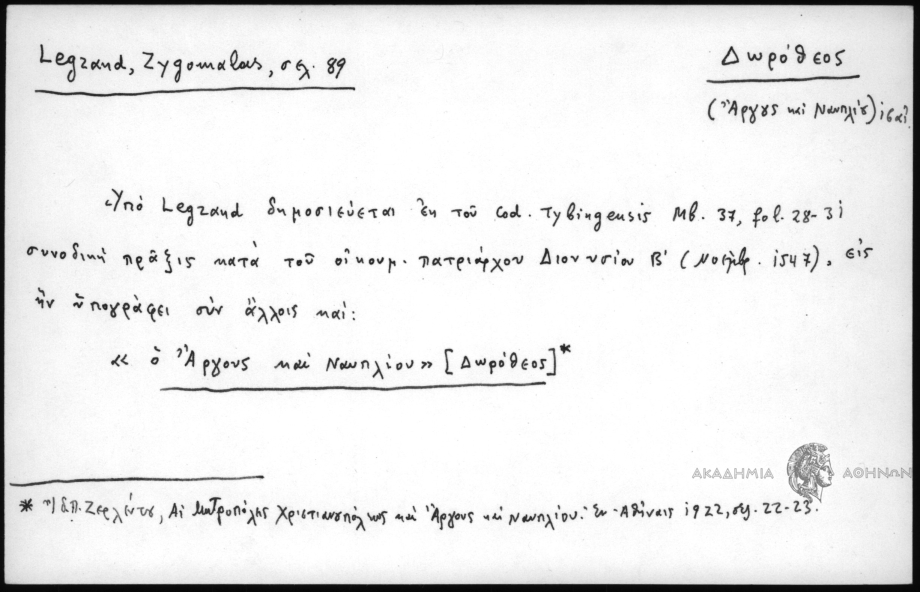 Legrand, Zygomalas, σελ. 89
Δωρόθεος
(Ἄργους καὶ Ναυπλίου)
Ὑπὸ Legrand δημοσιεύεται ἐκ τοῦ cod. Tybingensis Mb. 37, fol. 28-31
συνοδικὴ πρᾶξις κατὰ τοῦ οἰκουμ. πατριάρχου Διονυσίου Β' (Νοέμβρ. 1547), εἰς
ἣν ὑπογράφει σὺν ἄλλοις καί:
«ὁ Ἄργους καὶ Ναυπλίου» [Δωρόθεος]*
ΑΚΑΔΗΜΙΑ ΑΘΗΝΩΝ
* Ἰδ. Π. Ζερλέντου, Αἱ Μητροπόλεις Χριστιανουπόλεως καὶ Ἄργους καὶ Ναυπλίου. Ἐν Ἀθήναις 1922, σελ. 22-23.